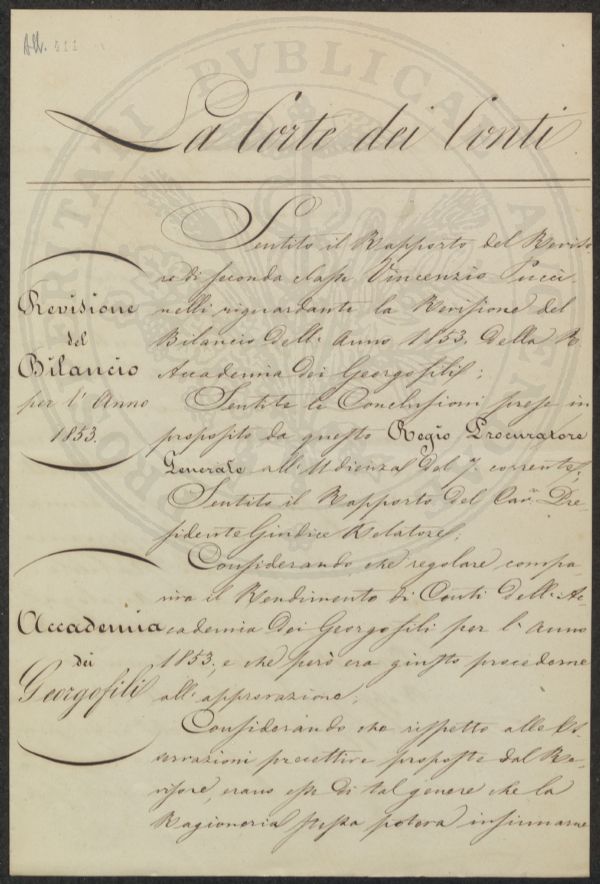 All. 511
La Corte dei Conti
Sentito il Rapporto del Reviso
re di seconda classe Vincenzio Pucci
nelli riguardante la Revisione del
Bilancio dell' Anno 1853. della R.
Accademia dei Georgofili;
Sentite le Conclusioni prese in
proposito da questo Regio Procuratore
Generale all' Udienza del 7. corrente;
Sentito il Rapporto del Cav. Pre-
sidente Giudice Relatore;
Considerando che regolare compa
riva il Rendimento di Conti dell' Ac-
cademia dei Georgofili per l' Anno
1853; e che però era giusto procederne
all' approvazione;
Considerando che rispetto alle Os
servazioni precettive proposte dal Re-
visore, erano esse di tal genere che la
Ragioneria stessa poteva insinuarne
Revisione
del
Bilancio
per l' Anno
1853.
Accademia
dei
Georgofili
PROSPERITATI PUBLICAE AUGENDAE